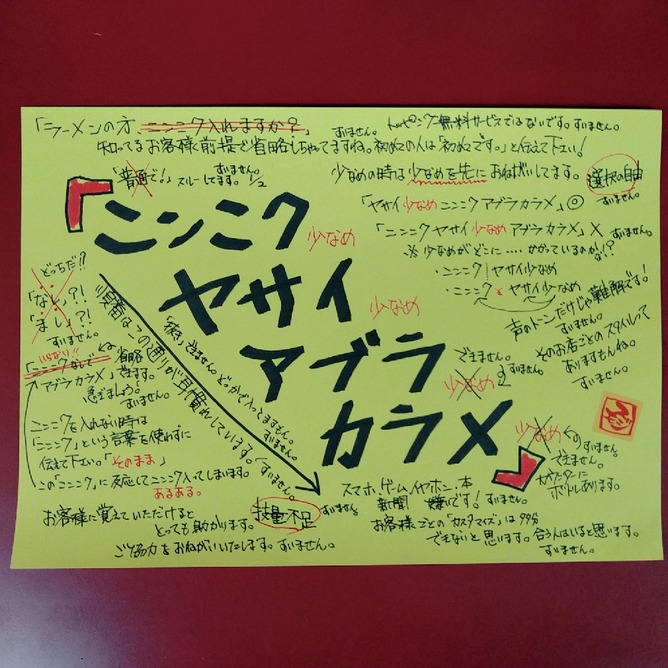 「ラーメンの方、ニンニク入れますか？」 すいません。
トッピング無料サービスではないです。すいません。
知ってるお客様前提で省略しちゃてますね。初めての人は「初めてです。」と伝えて下さい!
「普通で!」スルーしてます。すいません。1/2
少なめの時は少なめを先におねがいしてます。
選択の自由
すいません。
「ヤサイ少なめニンニクアブラカラメ」◎
「ニンニクヤサイ少なめアブラカラメ」× すいません。
※少なめがどこに‥‥かかっているのか!?
・ニンニク|ヤサイ少なめ
・ニンニクとヤサイ少なめ
声のトーンだけじゃ難解です!
すいません。
そのお店ごとのスタイルって
ありますもんね。
すいません。
「ニンニク 少なめ
ヤサイ 少なめ
アブラ 少なめ
カラメ」 少なめ
できません。
すいません。
くのすいません。
できません。
ボトルあります。
どっちだ!?
「なし」?!
「まし」?!
すいません。
いきなり!!
「ニンニクなしで
アブラカラメ」
省略
できます。
すいません。
ニンニクを入れない時は
「ニンニク」という言葉を使わずに
伝えて下さい。「そのまま」
この「ニンニク」に反応してニンニク入ってしまいます。
あるある。
順番はこの通りが耳慣れしています。すいません。
「抜き」できません。どっかで入ってますもん。
すいません。
技量不足
すいません。
お客様に覚えていただけると
とっても助かります。
ご協力をおねがいいたします。すいません。
スマホ、ゲーム、イヤホン、本
新聞 嫌いです! すいません。
お客様ごとの「カスタマイズ」は99%
できないと思います。合う人はいると思います。
すいません。